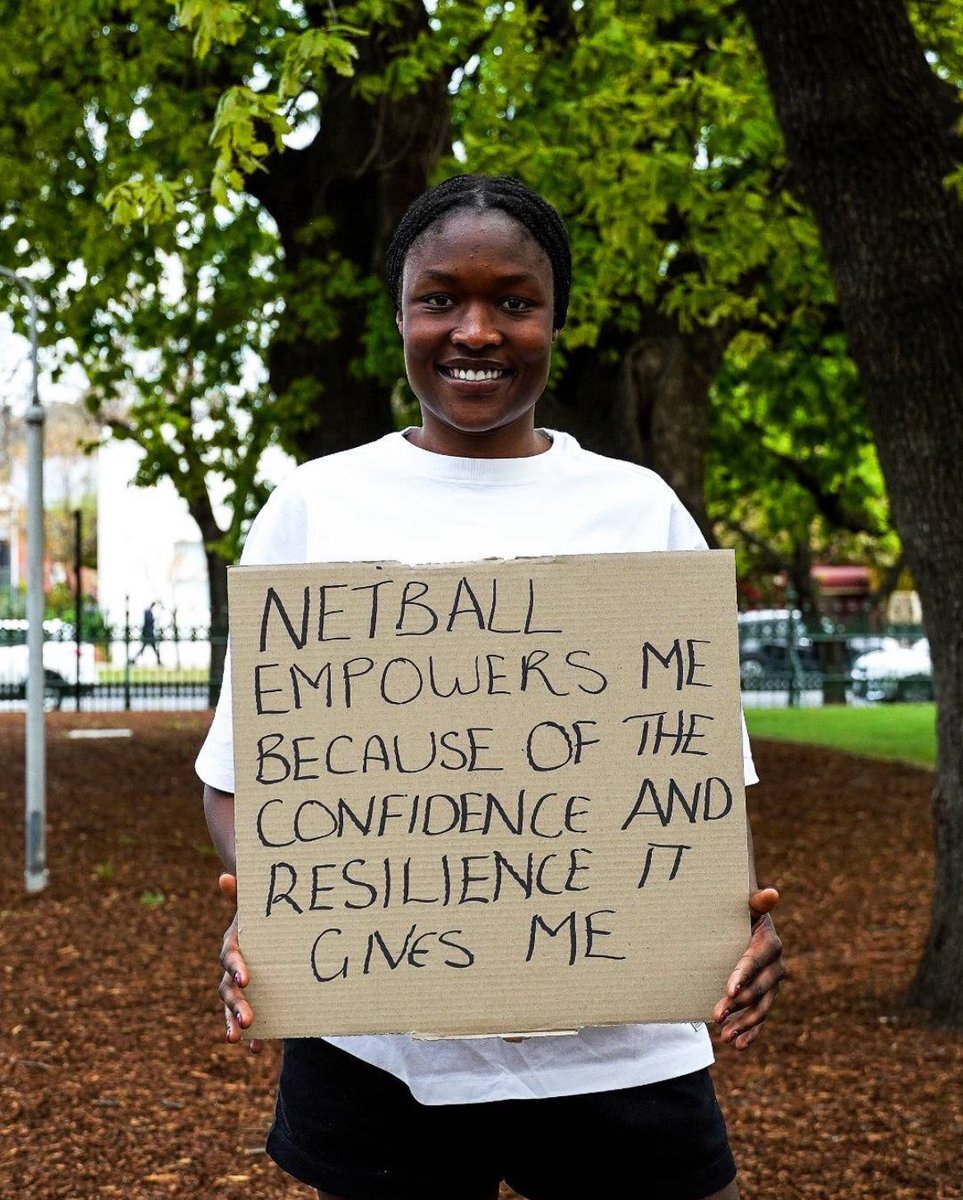 NETBALL
EMPOWERS ME
BECAUSE OF THE
CONFIDENCE AND
RESILIENCE IT
GIVES ME